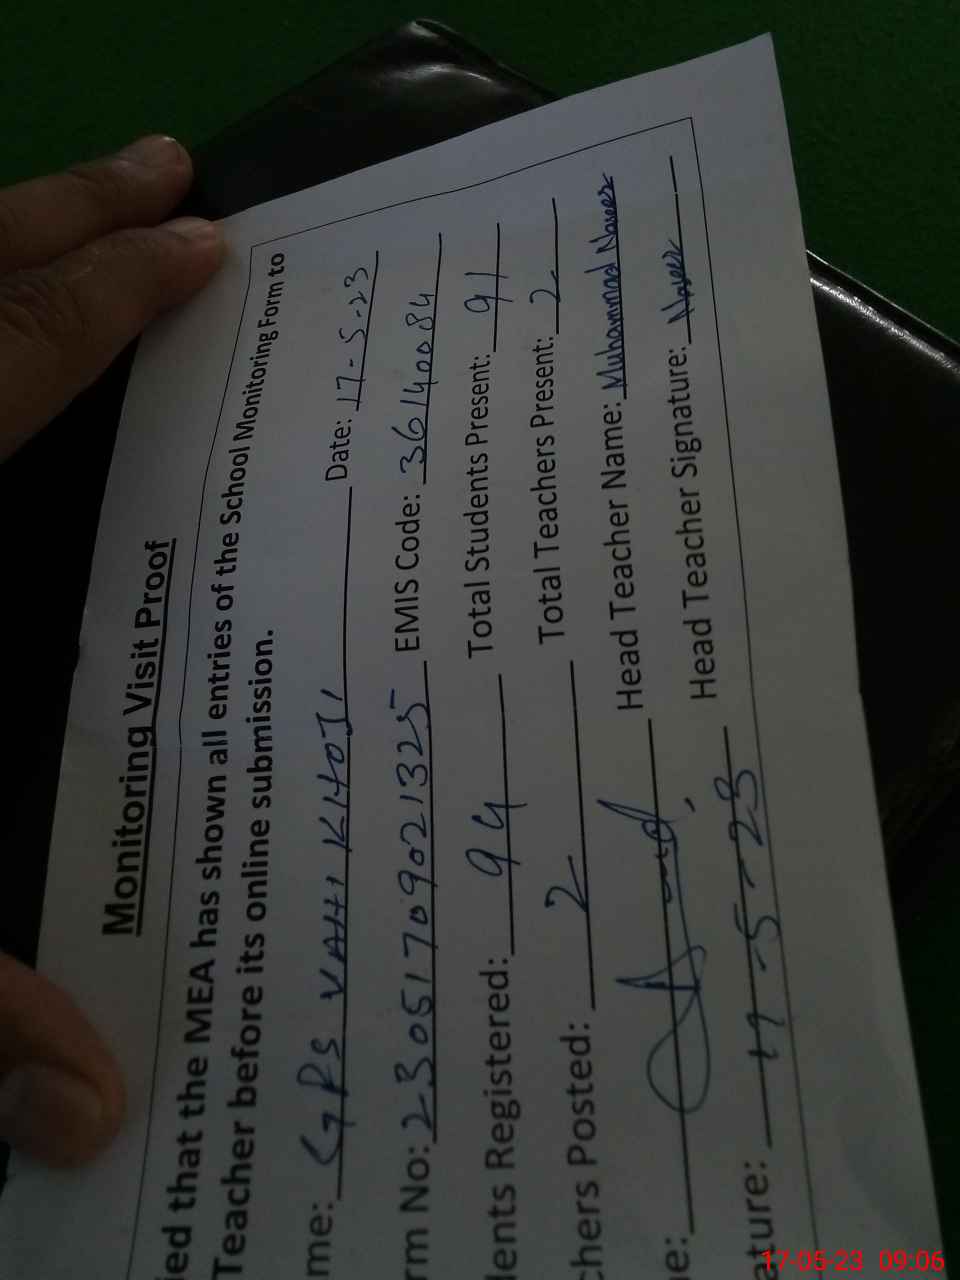 Monitoring Visit Proof
ied that the MEA has shown all entries of the School Monitoring Form to
Teacher before its online submission.
me: GPS VAHI KHOJI Date: 17-5-23
rm No: 23051709021325 EMIS Code: 36140084
dents Registered: 94 Total Students Present: 91
chers Posted: 2 Total Teachers Present: 2
e: Head Teacher Name: Muhammad Naseer
ature: 17-5-23 Head Teacher Signature: Naseer
17-05-23 09:06